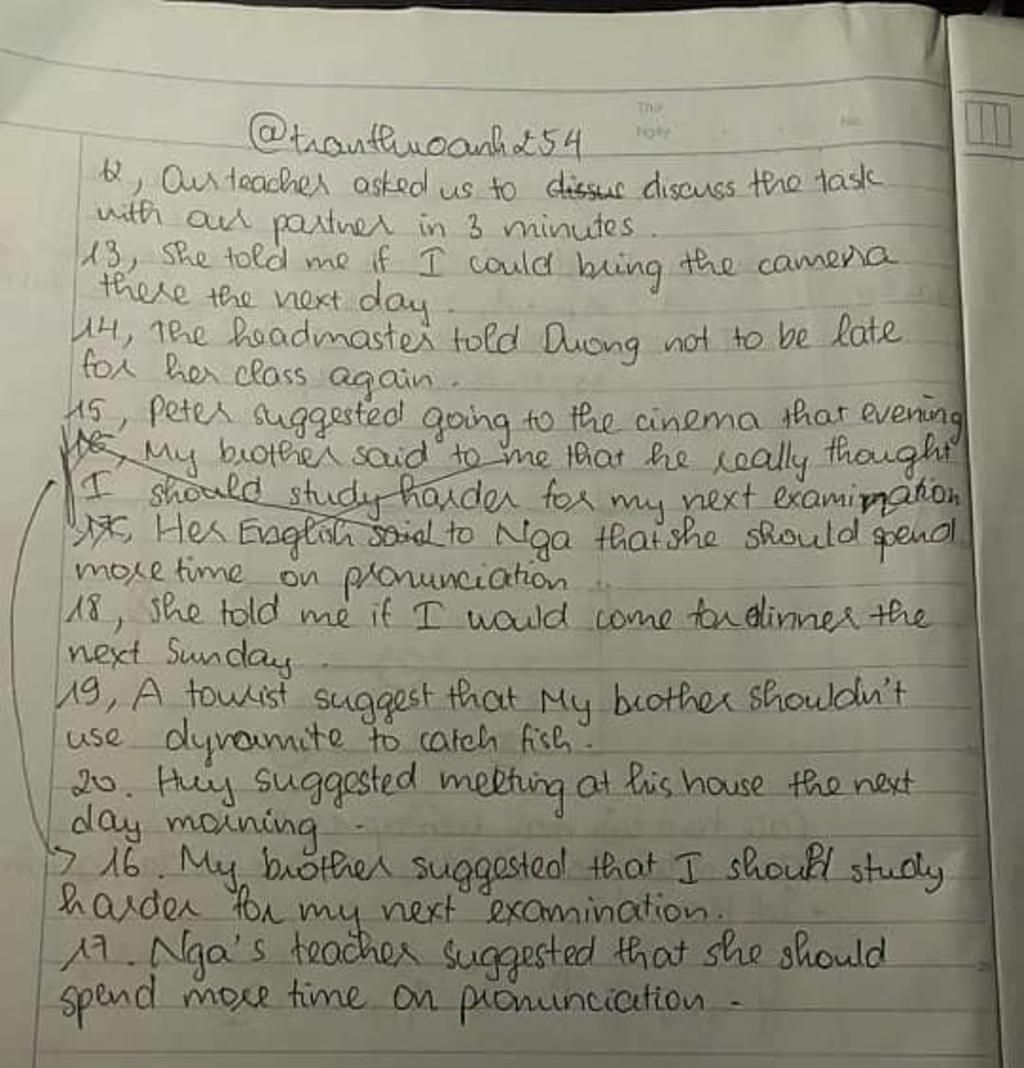 Thứ
Ngày
No.
@tranthuoanh254
12, Our teacher asked us to dissuc discuss the task
with our partner in 3 minutes.
13, She told me if I could bring the camera
there the next day.
14, The headmaster told Duong not to be late
for her class again.
15, Peter suggested going to the cinema that evening
16, My brother said to me that he really thought
I should study harder for my next examination
17, Her English said to Nga that she should spend
more time on pronunciation.
18, She told me if I would come for dinner the
next Sunday.
19, A tourist suggest that My brother shouldn't
use dynamite to catch fish.
20. Huy suggested meeting at his house the next
day morning.
-> 16. My brother suggested that I should study
harder for my next examination.
17. Nga's teacher suggested that she should
spend more time on pronunciation.